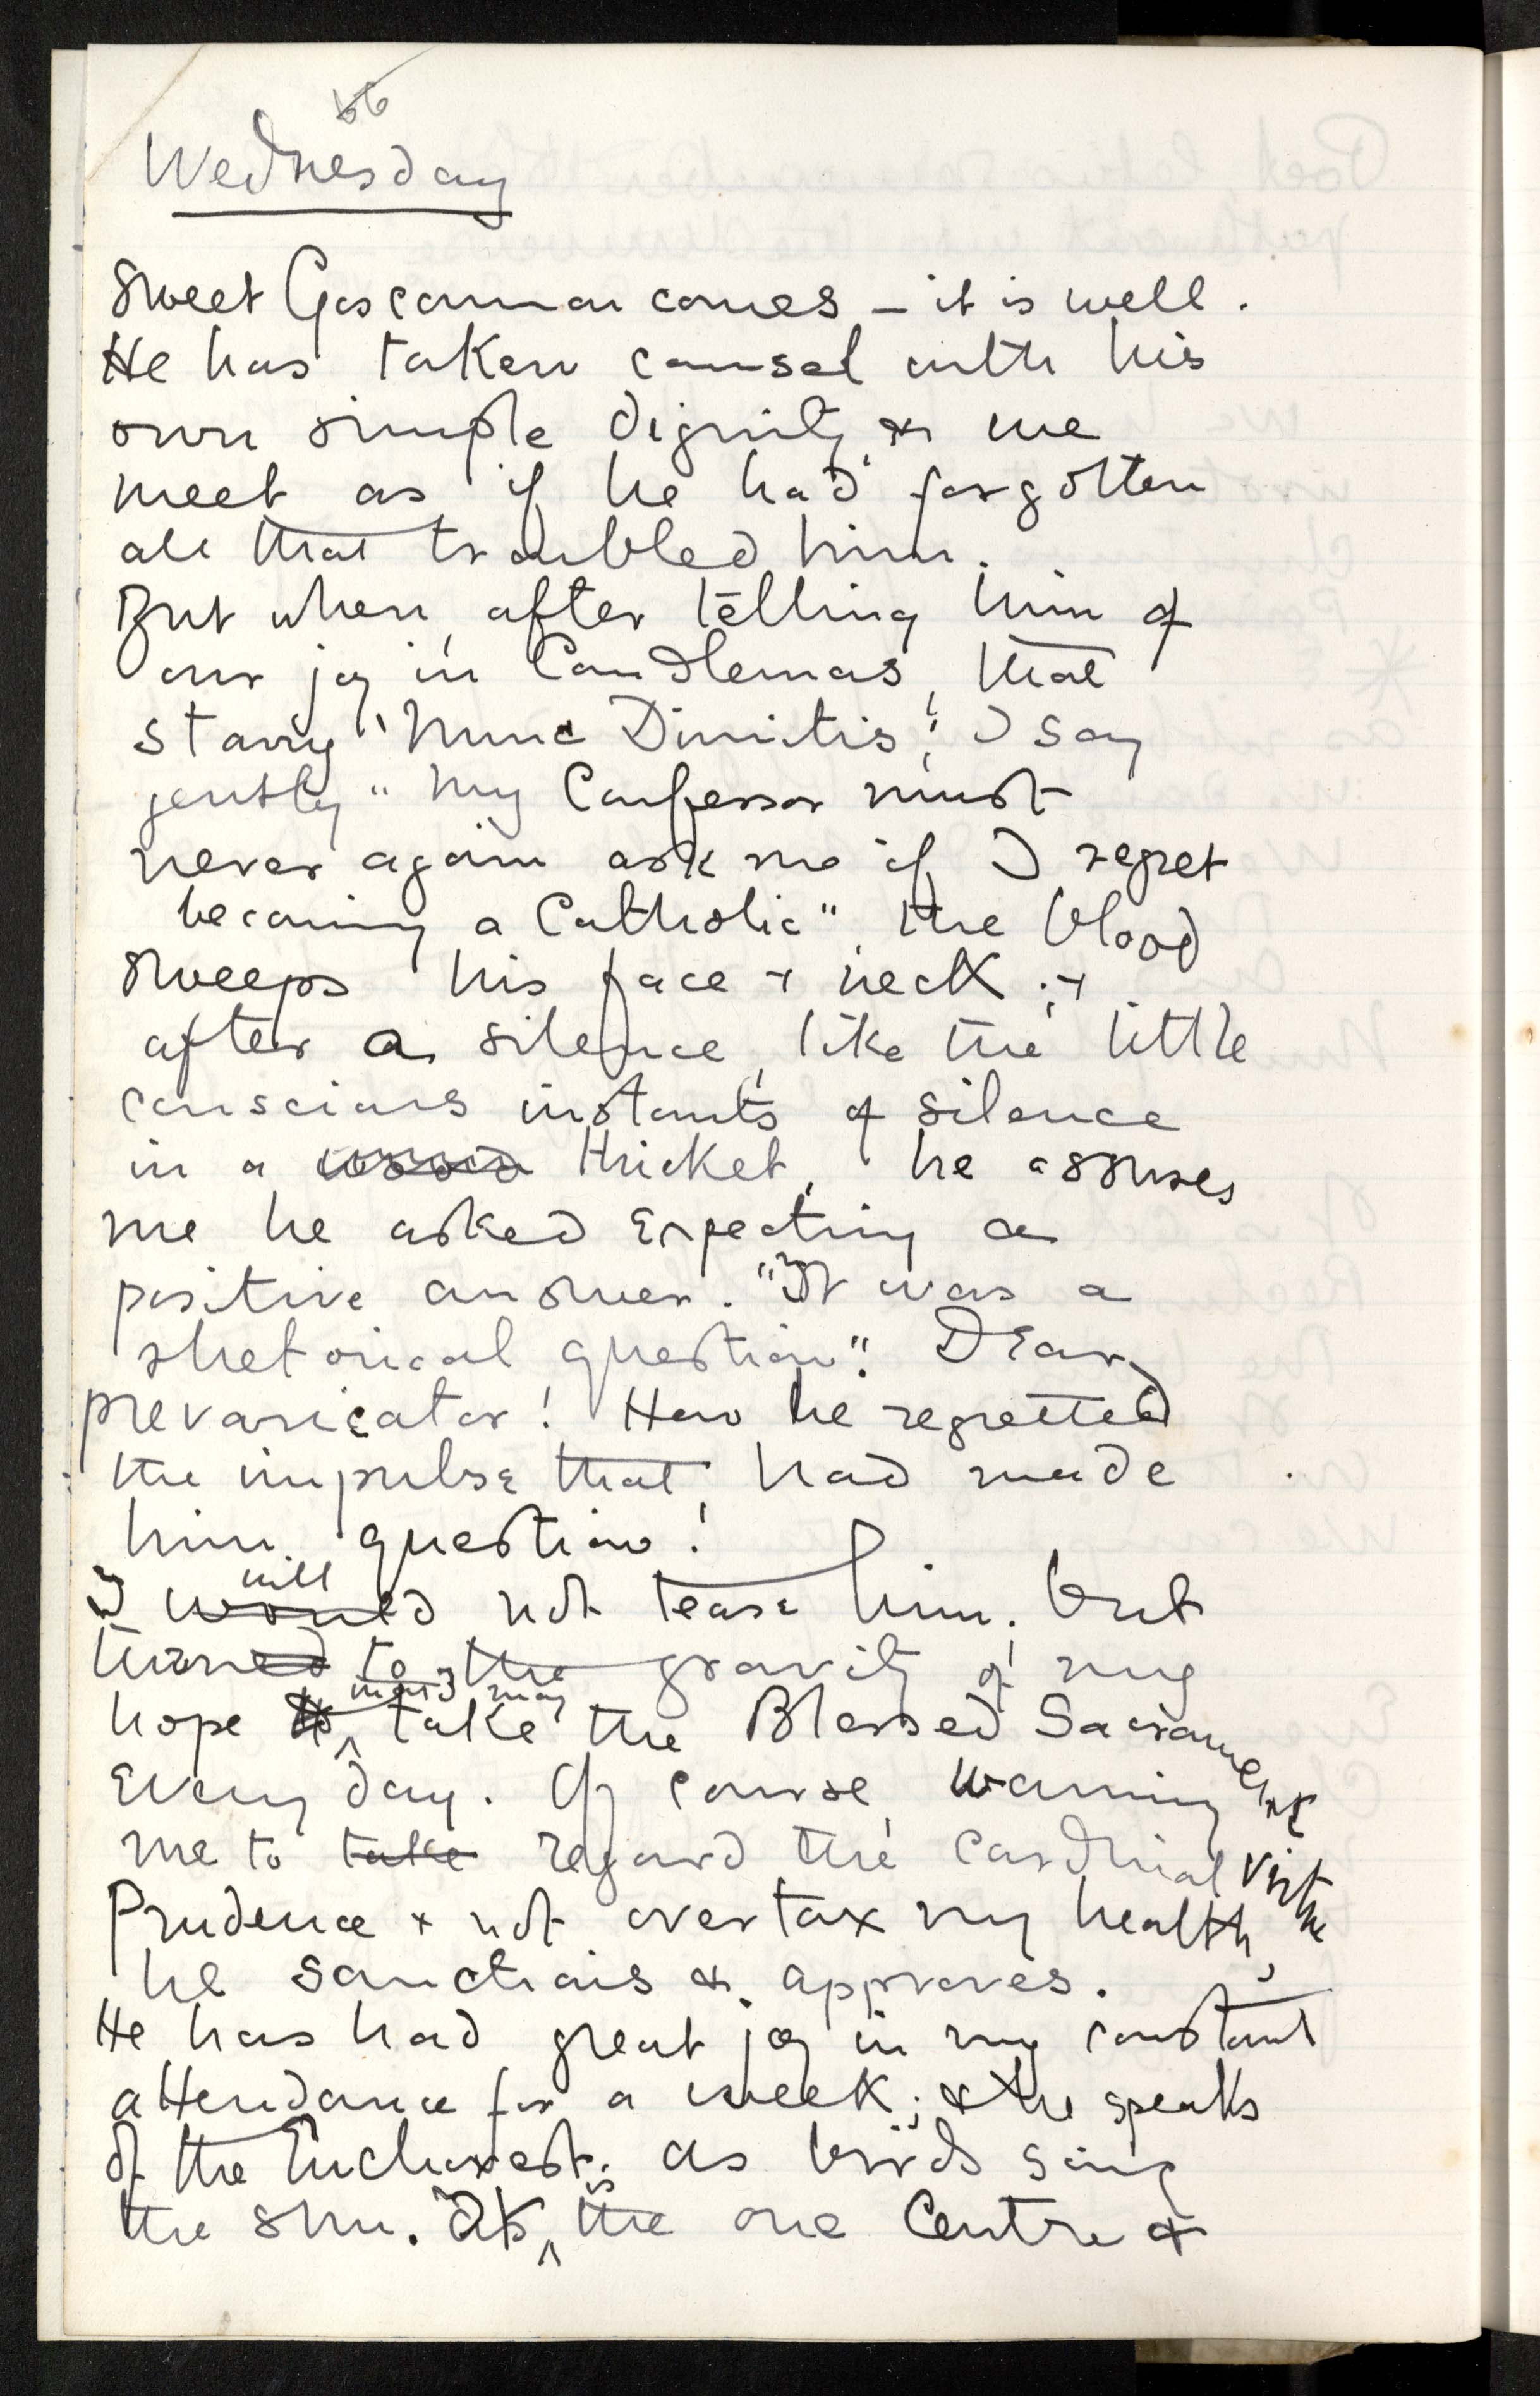 66
Wednesday
Sweet Goscannon comes – it is well.
He has taken counsel with his
own simple dignity, & we
meet as if he had forgotten
all that troubled him.
But when, after telling him of
our joy in Candlemas, that
starry 'Nunc Dimittis', I say
gently "My Confessor must
never again ask me if I regret
becoming a Catholic", the blood
sweeps his face & neck; &
after a silence, like the little
conscious instants of silence
in a wood thicket, he assures
me he asked expecting a
positive answer. "It was a
rhetorical question". Dear
prevaricator! How he regretted
the impulse that had made
him question!
will
I would not tease him, but
turned to the gravity of my
hope to take the Blessed Sacrament
Every day. Of course, warning
me to take regard the cardinal virtue
Prudence & not overtax my health,
he sanctions & approves.
He has had great joy in my constant
attendance for a week; & he speaks
of the Eucharist, as birds sing
is
the sun. It the one Centre &